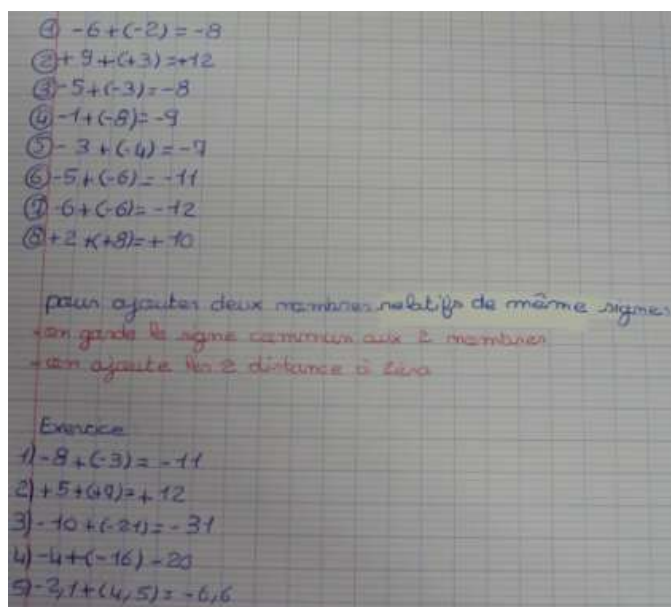 ① -6+(-2)=-8
② +9+(+3)=+12
③ -5+(-3)=-8
④ -1+(-8)=-9
⑤ -3+(-4)=-7
⑥ -5+(-6)=-11
⑦ -6+(-6)=-12
⑧ +2+(+8)=+10
pour ajouter deux nombres relatifs de même signes
-on garde le signe commun aux 2 nombres
-on ajoute les 2 distance à zéro
Exercice
1) -8+(-3)=-11
2) +5+(+7)=+12
3) -10+(-21)=-31
4) -4+(-16)-20
5) -2,1+(4,5)=-6,6